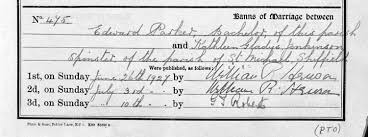 Banns of Marriage between
No 475
Edward Parker, Bachelor, of this parish
and Kathleen Gladys Jenkinson
Spinster of the parish of St Michael Sheffield
Were published, as follows:
1st, on Sunday June 26th 1927 by William R
2d, on Sunday July 3rd by William R
3d, on Sunday " 10th " by Roberts
(PTO)